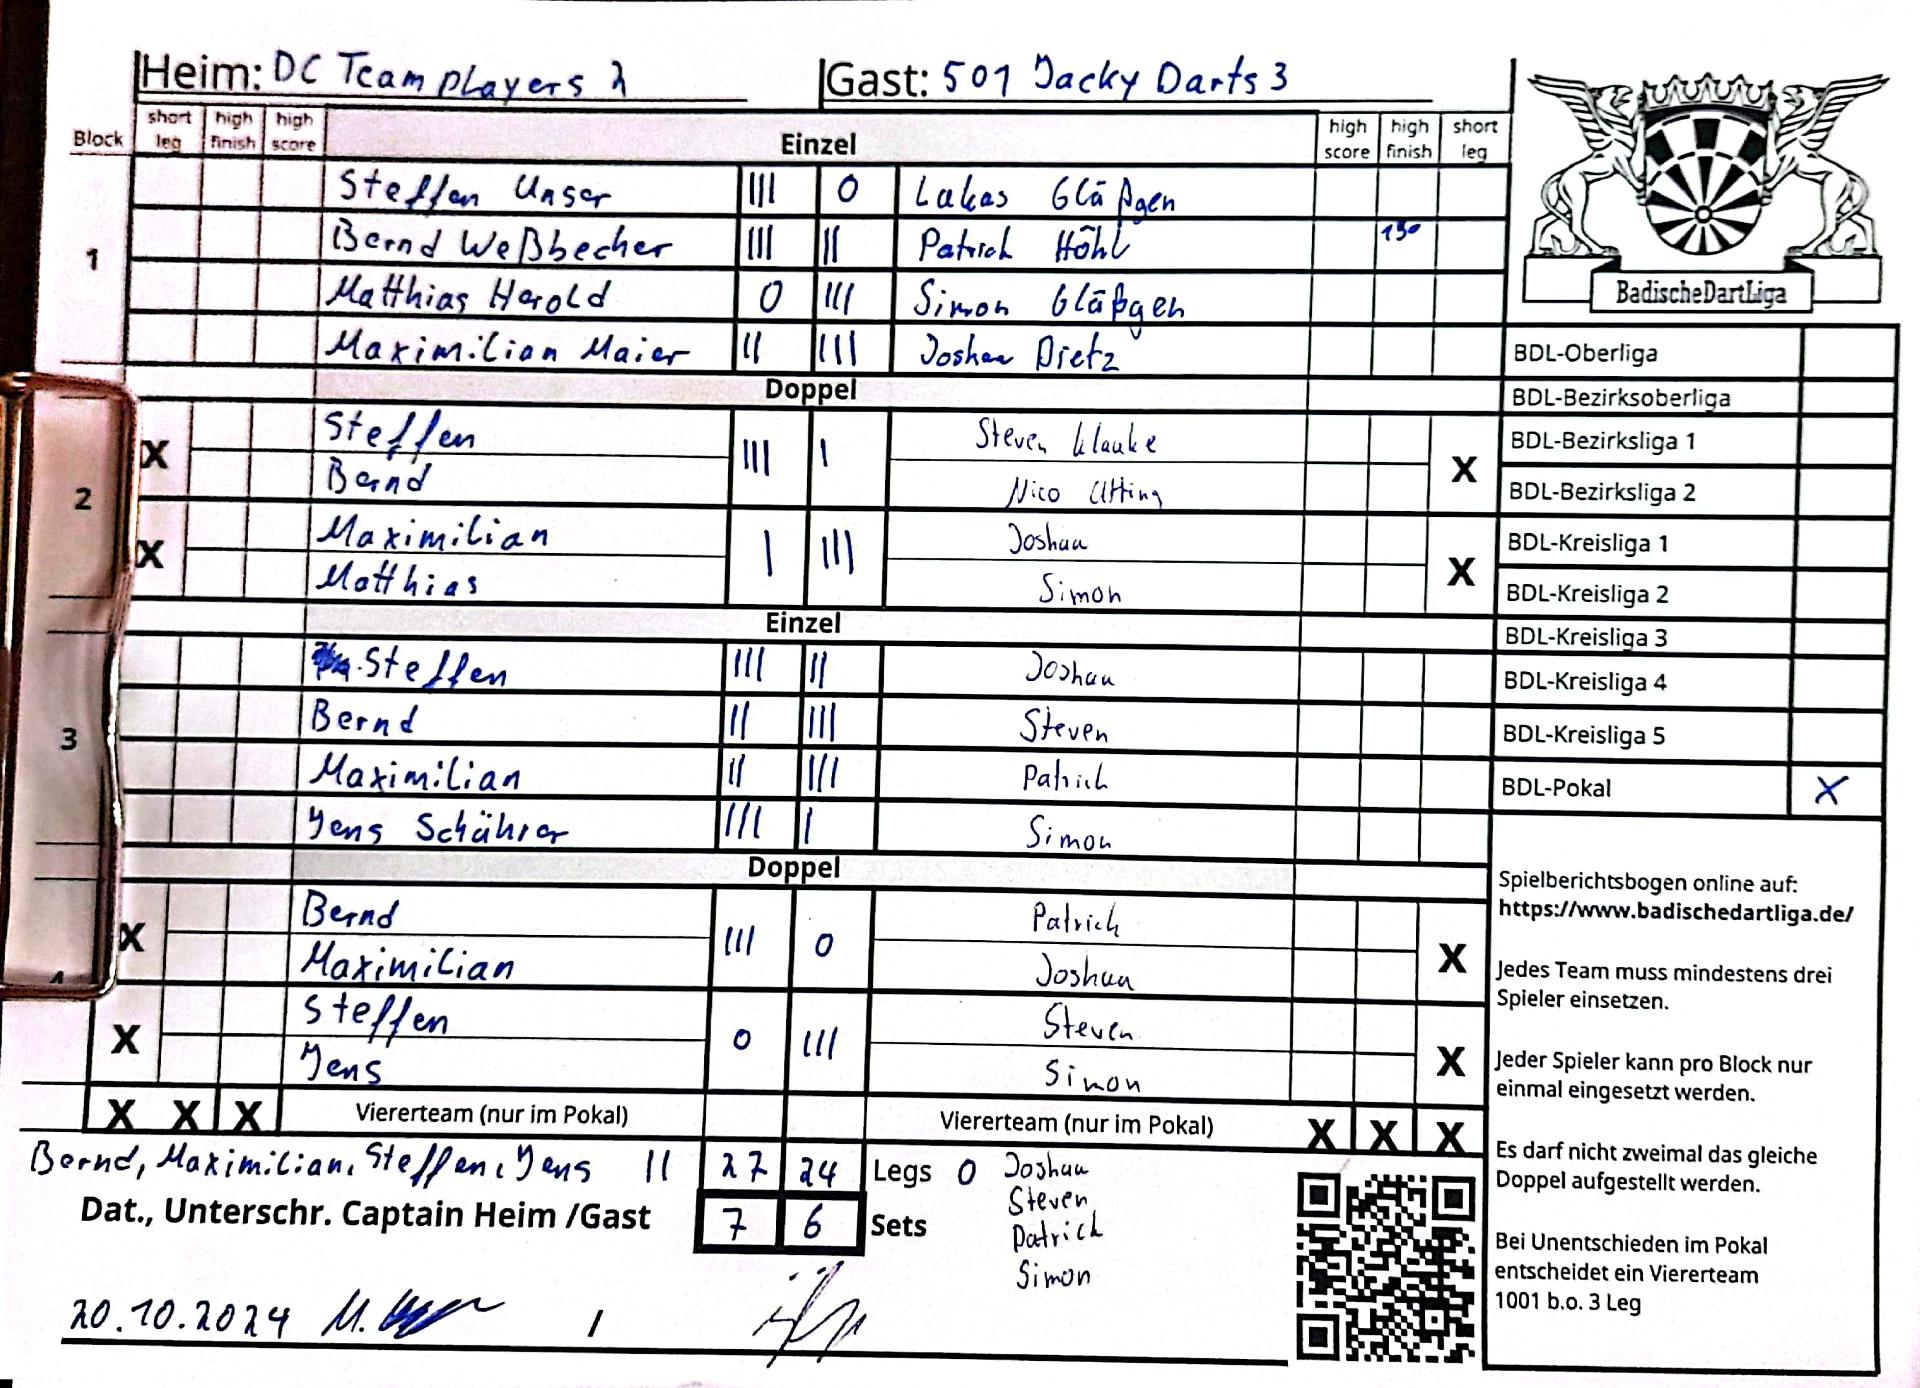 Heim: DC Teamplayers 2 Gast: 501 Jacky Darts 3
Block short leg high finish high score Einzel high score high finish short leg
1
Steffen Unser III 0 Lukas Gläßgen
Bernd Weßbecher III II Patrick Höhl 130
Matthias Herold 0 III Simon Gläßgen
Maximilian Maier II III Joshua Dietz
Doppel
2
X Steffen III I Steven Klauke X
Bernd Nico Utting
X Maximilian I III Joshua X
Matthias Simon
Einzel
3
Steffen III II Joshua
Bernd II III Steven
Maximilian II III Patrick
Jens Schührer III I Simon
Doppel
4
X Bernd III 0 Patrick X
Maximilian Joshua
X Steffen 0 III Steven X
Jens Simon
X X X Viererteam (nur im Pokal) Viererteam (nur im Pokal) X X X
Bernd, Maximilian, Steffen, Jens II 27 24 Legs 0 Joshua
Steven
Patrick
Simon
Dat., Unterschr. Captain Heim /Gast 7 6 Sets
20.10.2024 /
BadischeDartLiga
BDL-Oberliga
BDL-Bezirksoberliga
BDL-Bezirksliga 1
BDL-Bezirksliga 2
BDL-Kreisliga 1
BDL-Kreisliga 2
BDL-Kreisliga 3
BDL-Kreisliga 4
BDL-Kreisliga 5
BDL-Pokal X
Spielberichtsbogen online auf:
https://www.badischedartliga.de/
Jedes Team muss mindestens drei
Spieler einsetzen.
Jeder Spieler kann pro Block nur
einmal eingesetzt werden.
Es darf nicht zweimal das gleiche
Doppel aufgestellt werden.
Bei Unentschieden im Pokal
entscheidet ein Viererteam
1001 b.o. 3 Leg